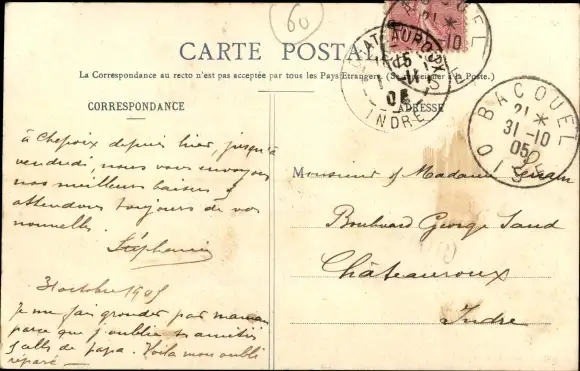 60
CARTE POSTALE
La Correspondance au recto n'est pas acceptée par tous les Pays Etrangers. (Se renseigner à la Poste.)
CORRESPONDANCE
ADRESSE
BACOUEL
21 *
10
CHATEAUROUX
11
05
INDRE
BACOUEL
21 *
31-10
05
OISE
à Chepoix depuis hier, jusqu'à
vendredi, nous vous envoyons
nos meilleurs baisers &
attendons toujours de vos
nouvelles.
Stéphanie
31 octobre 1905
Je me fais gronder par maman
parce que j'oublie ses amitiés
& celles de papa. Voilà mon oubli
réparé
Monsieur & Madame
Boulevard George Sand
Châteauroux
Indre